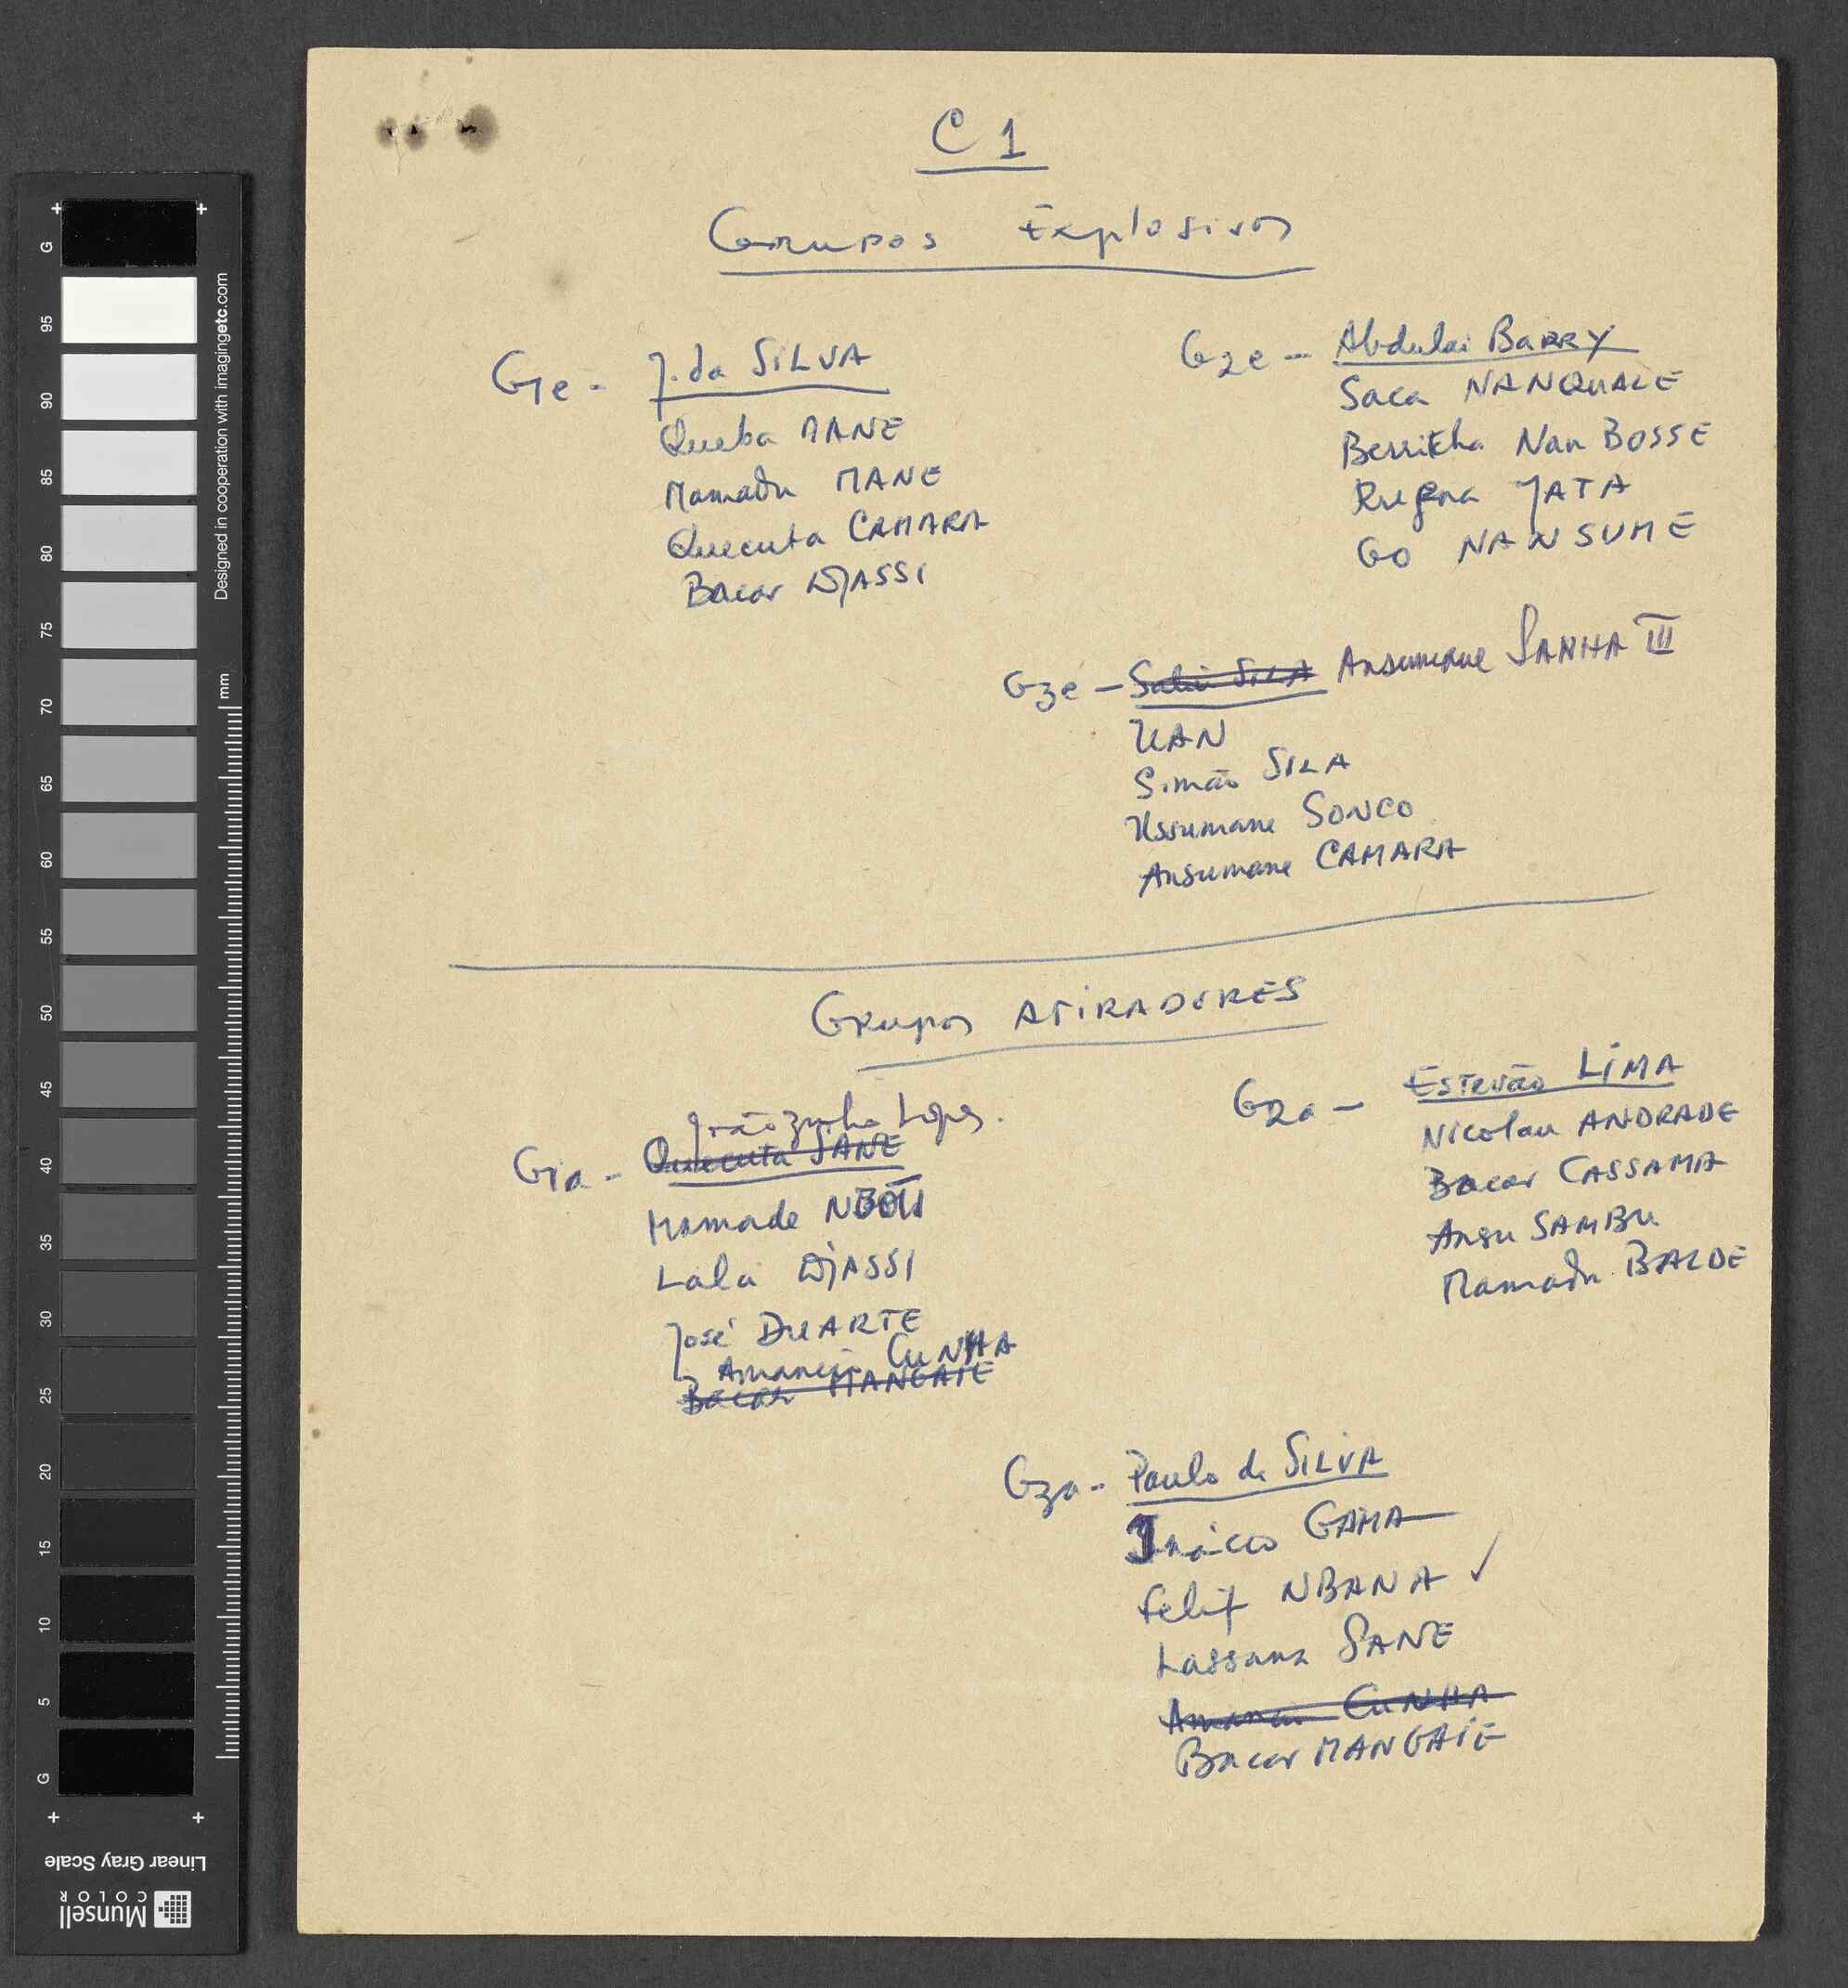 C 1
Grupos Explosivos
G1e - J. da SILVA
Queba MANE
Mamadu MANE
Quecuta CAMARA
Bacar DJASSI
G2e - Abdulai BARRY
Saca NANQUALE
Nan BOSSE
JATA
GO NANSUME
G3e - Salu SILA Ansumane SANHA III
UAN
Simão SILA
Ussumane SONCO
Ansumane CAMARA
Grupos ATIRADORES
Joãozinho Lopes.
G1a - Quecuta SANE
Mamade
Lala DJASSI
José DUARTE
Amancio CUNHA
Bacar MANGAIE
G2a - Estevão LIMA
Nicolau ANDRADE
Bacar CASSAMA
Ansu SAMBU
Mamadu BALDE
G3a - Paulo da SILVA
Inácio GAMA
Felif NBANA ✓
Lassana SANE
Amancio CUNHA
Bacar MANGAIE
G 95 90 85 80 75 70 65 60 55 50 45 40 35 30 25 20 15 10 5 G
Designed in cooperation with imagingetc.com
mm
Linear Gray Scale
Munsell
COLOR